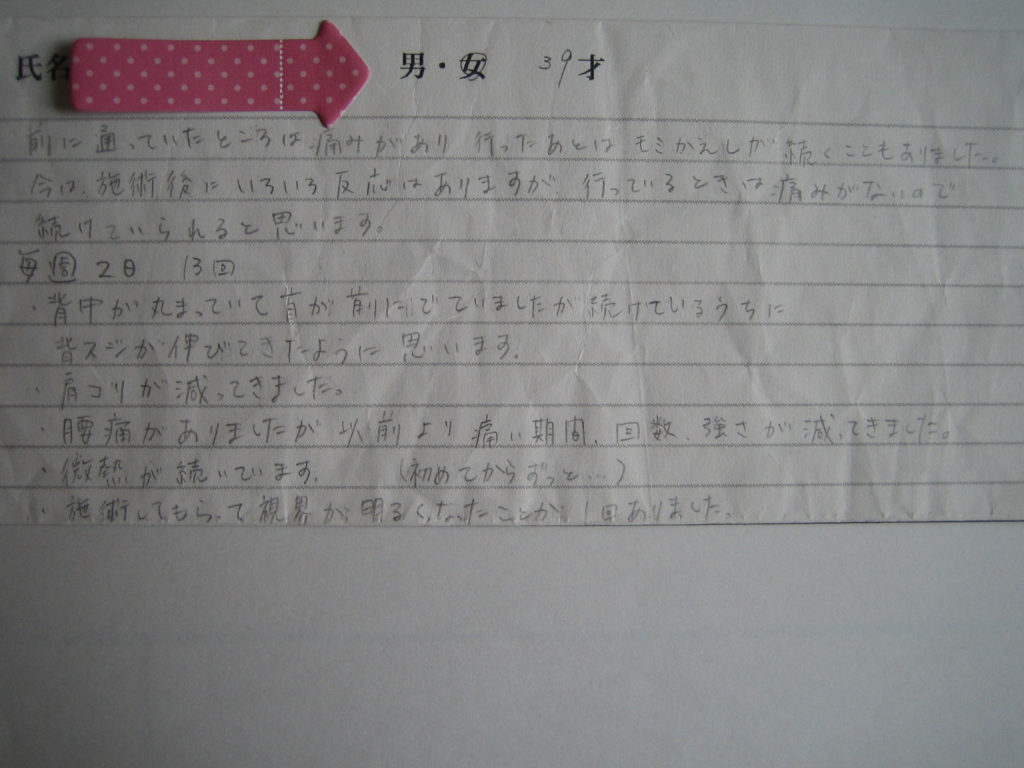 氏名 男・女 39才
前に通っていたところは痛みがあり 行ったあとは モミかえしが続くこともありました。
今は、施術後に いろいろ反応はありますが、行っているときは痛みがないので
続けていられると思います。
毎週 2日 13回
・背中が丸まっていて首が前にでていましたが続けているうちに
背スジが伸びてきたように思います。
・肩コリが減ってきました。
・腰痛がありましたが以前より痛い期間、回数、強さが減ってきました。
・微熱が続いています。 (初めてからずっと…)
・施術してもらって視界が明るくなったことが1回ありました。